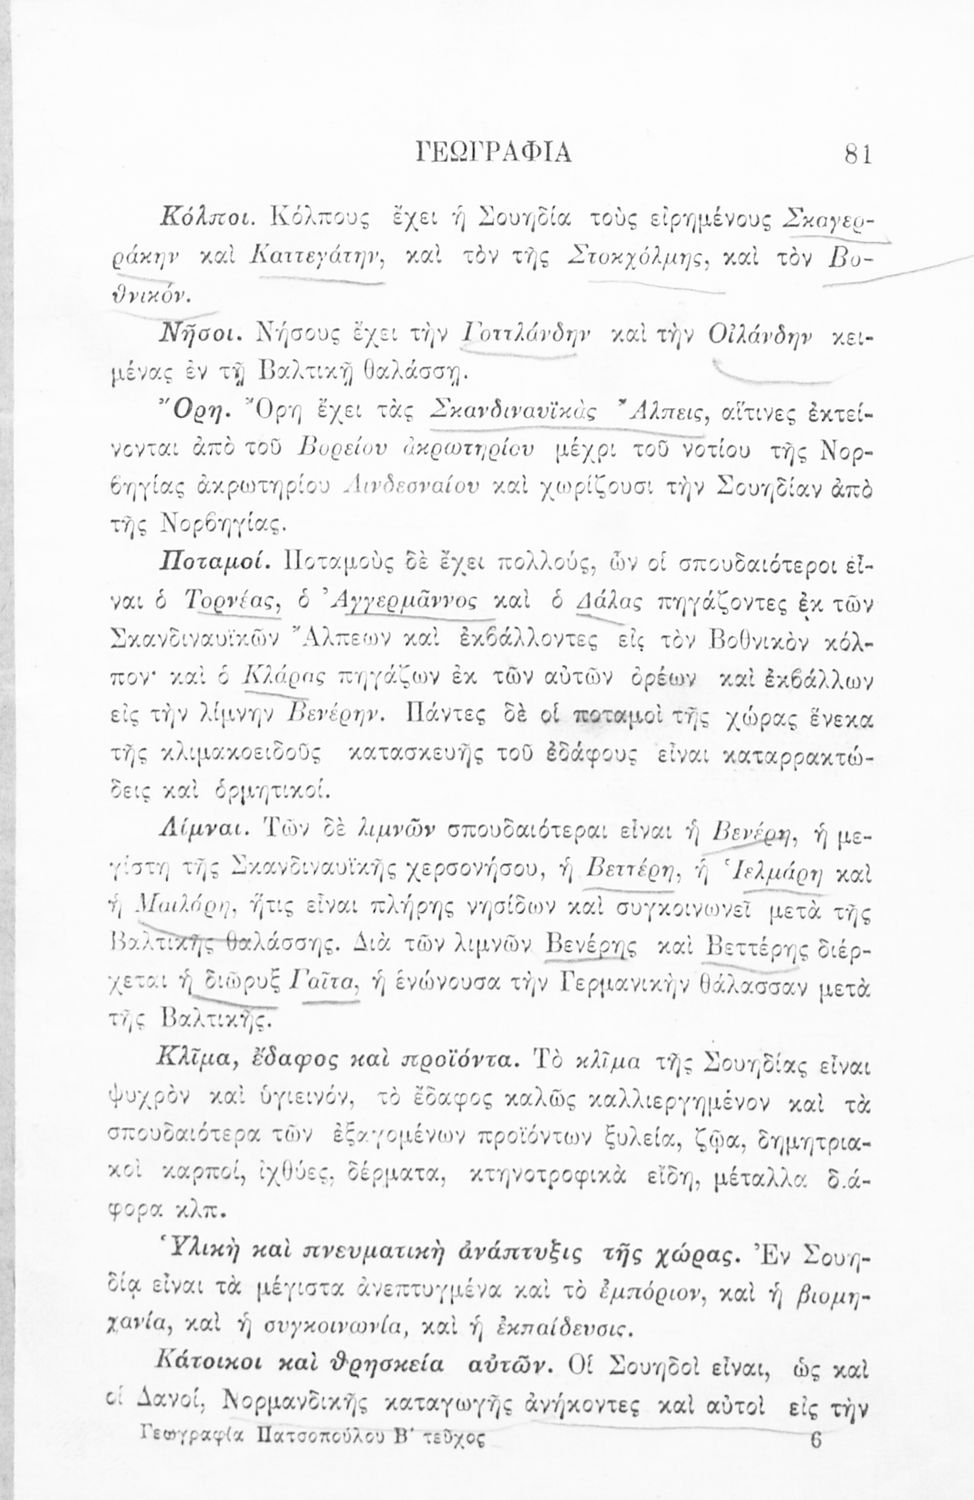 ΓΕΩΓΡΑΦΙΑ 81
Κόλποι. Κόλπους ἔχει ἡ Σουηδία τοὺς εἰρημένους Σκαγερ-
ράκην καὶ Καττεγάτην, καὶ τὸν τῆς Στοκχόλμης, καὶ τὸν Βο-
θνικόν.
Νῆσοι. Νήσους ἔχει τὴν Γοττλάνδην καὶ τὴν Οἰλάνδην κει-
μένας ἐν τῇ Βαλτικῇ θαλάσσῃ.
Ὄρη. Ὄρη ἔχει τὰς Σκανδιναυϊκὰς Ἄλπεις, αἵτινες ἐκτεί-
νονται ἀπὸ τοῦ Βορείου ἀκρωτηρίου μέχρι τοῦ νοτίου τῆς Νορ-
βηγίας ἀκρωτηρίου Λινδεσναίου καὶ χωρίζουσι τὴν Σουηδίαν ἀπὸ
τῆς Νορβηγίας.
Ποταμοί. Ποταμοὺς δὲ ἔχει πολλούς, ὧν οἱ σπουδαιότεροι εἶ-
ναι ὁ Τορνέας, ὁ Ἀγγερμᾶννος καὶ ὁ Δάλας πηγάζοντες ἐκ τῶν
Σκανδιναυϊκῶν Ἄλπεων καὶ ἐκβάλλοντες εἰς τὸν Βοθνικὸν κόλ-
πον· καὶ ὁ Κλάρας πηγάζων ἐκ τῶν αὐτῶν ὀρέων καὶ ἐκβάλλων
εἰς τὴν λίμνην Βενέρην. Πάντες δὲ οἱ ποταμοὶ τῆς χώρας ἕνεκα
τῆς κλιμακοειδοῦς κατασκευῆς τοῦ ἐδάφους εἶναι καταρρακτώ-
δεις καὶ ὁρμητικοί.
Λίμναι. Τῶν δὲ λιμνῶν σπουδαιότεραι εἶναι ἡ Βενέρη, ἡ με-
γίστη τῆς Σκανδιναυϊκῆς χερσονήσου, ἡ Βεττέρη, ἡ Ἱελμάρη καὶ
ἡ Μαιλάρη, ἥτις εἶναι πλήρης νησίδων καὶ συγκοινωνεῖ μετὰ τῆς
Βαλτικῆς θαλάσσης. Διὰ τῶν λιμνῶν Βενέρης καὶ Βεττέρης διέρ-
χεται ἡ διῶρυξ Γαῖτα, ἡ ἑνώνουσα τὴν Γερμανικὴν θάλασσαν μετὰ
τῆς Βαλτικῆς.
Κλῖμα, ἔδαφος καὶ προϊόντα. Τὸ κλῖμα τῆς Σουηδίας εἶναι
ψυχρὸν καὶ ὑγιεινόν, τὸ ἔδαφος καλῶς καλλιεργημένον καὶ τὰ
σπουδαιότερα τῶν ἐξαγομένων προϊόντων ξυλεία, ζῷα, δημητρια-
κοὶ καρποί, ἰχθύες, δέρματα, κτηνοτροφικὰ εἴδη, μέταλλα διά-
φορα κλπ.
Ὑλικὴ καὶ πνευματικὴ ἀνάπτυξις τῆς χώρας. Ἐν Σουη-
δίᾳ εἶναι τὰ μέγιστα ἀνεπτυγμένα καὶ τὸ ἐμπόριον, καὶ ἡ βιομη-
χανία, καὶ ἡ συγκοινωνία, καὶ ἡ ἐκπαίδευσις.
Κάτοικοι καὶ θρησκεία αὐτῶν. Οἱ Σουηδοὶ εἶναι, ὡς καὶ
οἱ Δανοί, Νορμανδικῆς καταγωγῆς ἀνήκοντες καὶ αὐτοὶ εἰς τὴν
Γεωγραφία Πατσοπούλου Β΄ τεῦχος 6